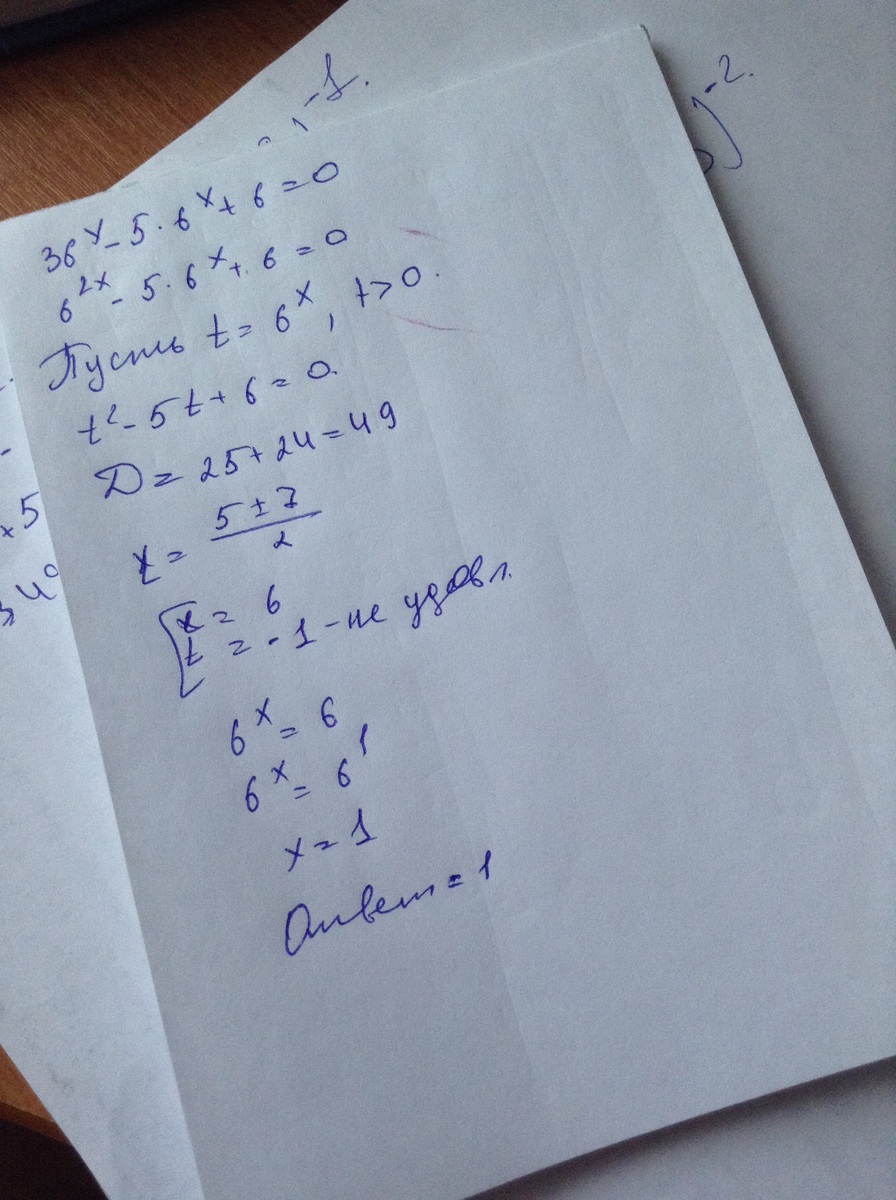 -1.
)-2.
36ˣ - 5 · 6ˣ + 6 = 0
6²ˣ - 5 · 6ˣ + 6 = 0
Пусть t = 6ˣ, t > 0.
t² - 5t + 6 = 0.
D = 25 + 24 = 49
t = (5 ± 7)/2
[t = 6
t = -1 - не удовл.
6ˣ = 6
6ˣ = 6¹
x = 1
Ответ = 1